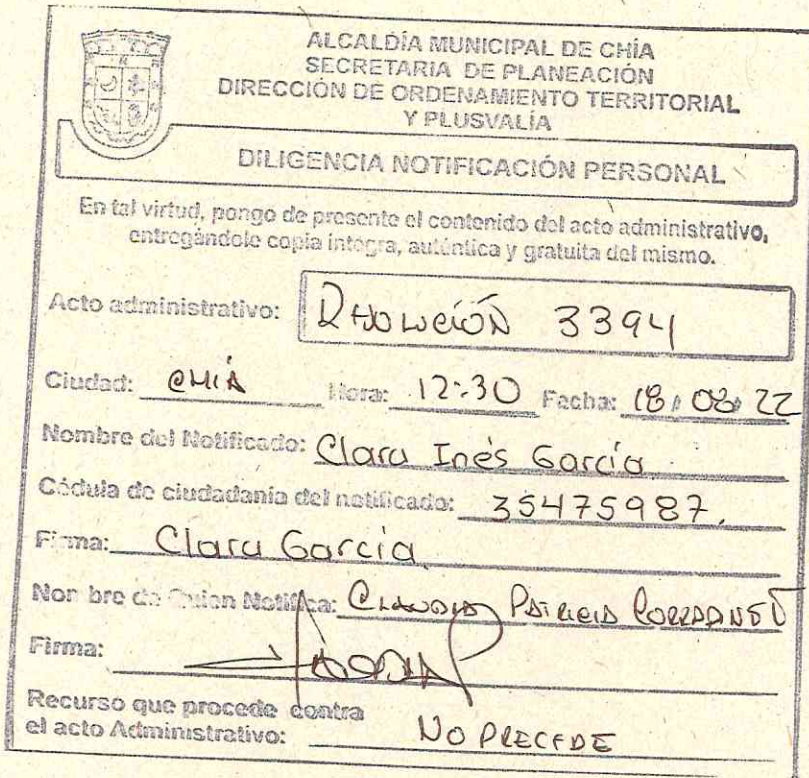 ALCALDÍA MUNICIPAL DE CHÍA
SECRETARIA DE PLANEACIÓN
DIRECCIÓN DE ORDENAMIENTO TERRITORIAL
Y PLUSVALÍA
DILIGENCIA NOTIFICACIÓN PERSONAL
En tal virtud, pongo de presente el contenido del acto administrativo,
entregándole copia integra, auténtica y gratuita del mismo.
Acto administrativo: Resolución 3394
Ciudad: CHIA Hora: 12:30 Fecha: 18, 08, 22
Nombre del Notificado: Clara Inés García
Cédula de ciudadanía del notificado: 35475987.
Firma: Clara García
Nombre de Quien Notifica: CLAUDIA PATRICIA
Firma:
Recurso que procede contra
el acto Administrativo: NO PRECEDE